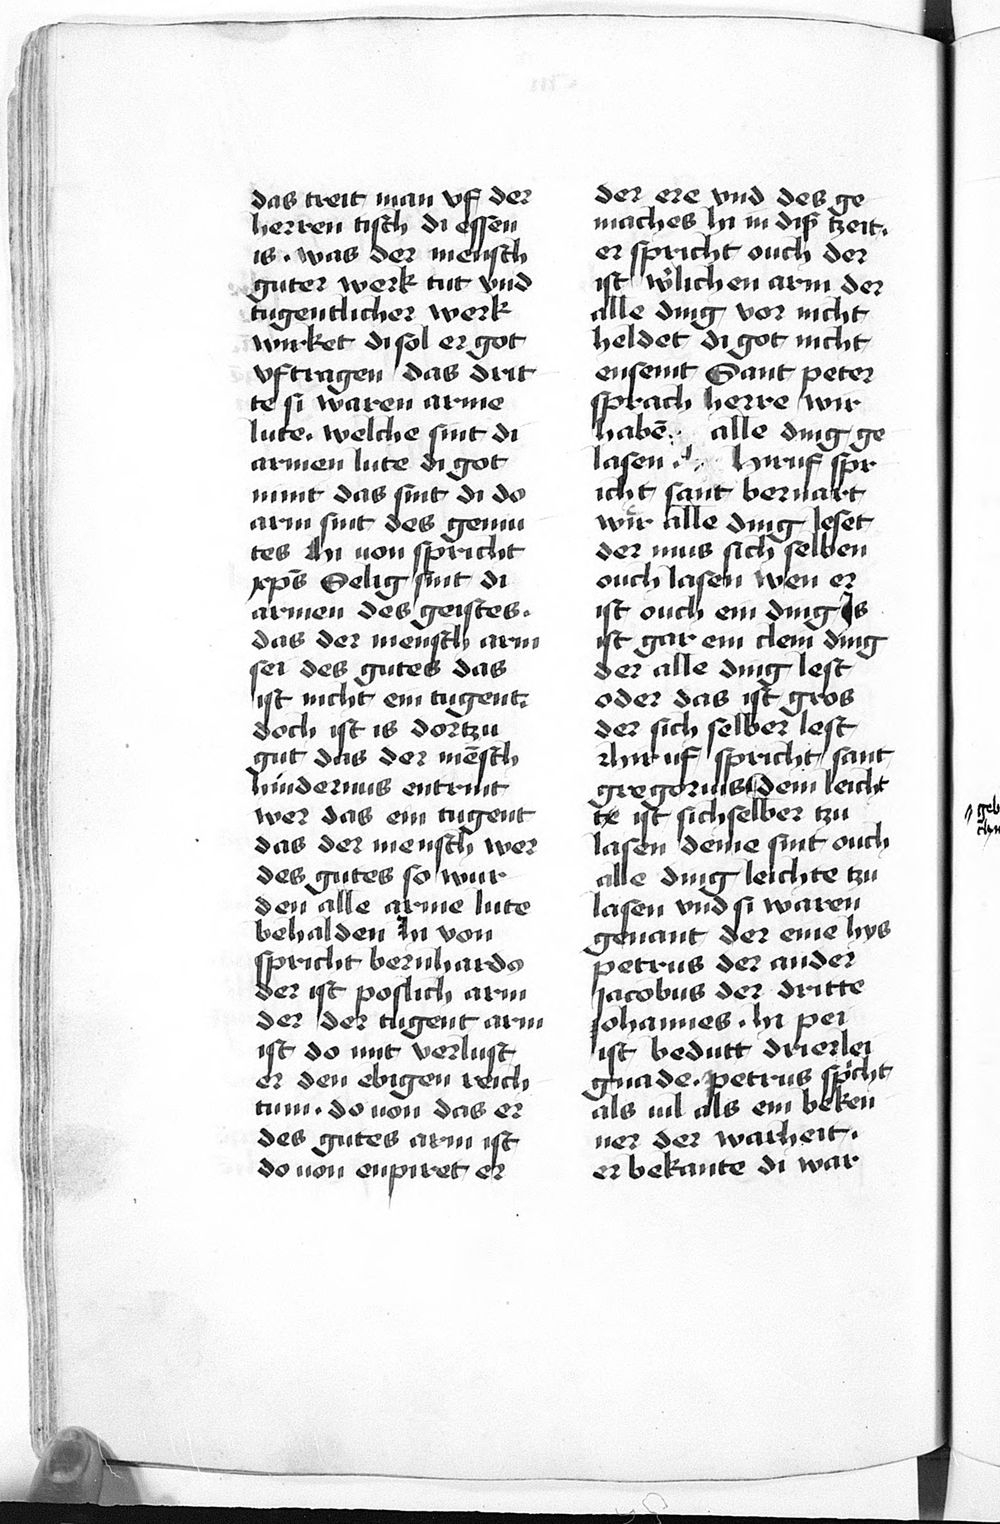 das treit man vf der
herren tisch di essen
is. was der mensch
guter werk tut vnd
tugentlicher werk
wirket di sol er got
vftragen das drit
te si waren arme
lute. welche sint di
armen lute di got
nimt das sint di do
arm sint des gemu
tes Hi uon spricht
xp̄s Selig sint di
armen des geistes.
das der mensch arm
sei des gutes das
ist nicht ein tugent
doch ist is dortzu
gut das der mēsch
hindernus entrint
wer das ein tugent
das der mensch wer
des gutes so wur
den alle arme lute
behalden Hi von
spricht bernhardo
der ist poslich arm
der der tugent arm
ist do mit verlust
er den ebigen reich
tum. do uon das er
des gutes arm ist
do uon enpiret er
der ere vnd des ge
maches hi in diser tzeit.
er spricht ouch der
ist w'lichen arm der
alle ding vor nicht
heldet di got nicht
ensemt Sant peter
sprach herre wir
habē alle ding ge
lasen. Hiruf spr
icht sant bernart
wir alle ding leset
der mus sich selben
ouch lasen wen er
ist ouch ein ding Is
ist gar ein clein ding
der alle ding lest
oder das ist gros
der sich selber lest
Hiruf spricht sant
gregorius Dem leicht
te ist sichselber tzu
lasen deme sint ouch
alle ding leichte tzu
lasen vnd si waren
genant der eine hys
petrus der ander
Jacobus der dritte
Johannes. hi pei
ist bedutt drierlei
gnade. petrus sp'cht
als uil als ein beken
ner der warheit.
er bekante di war